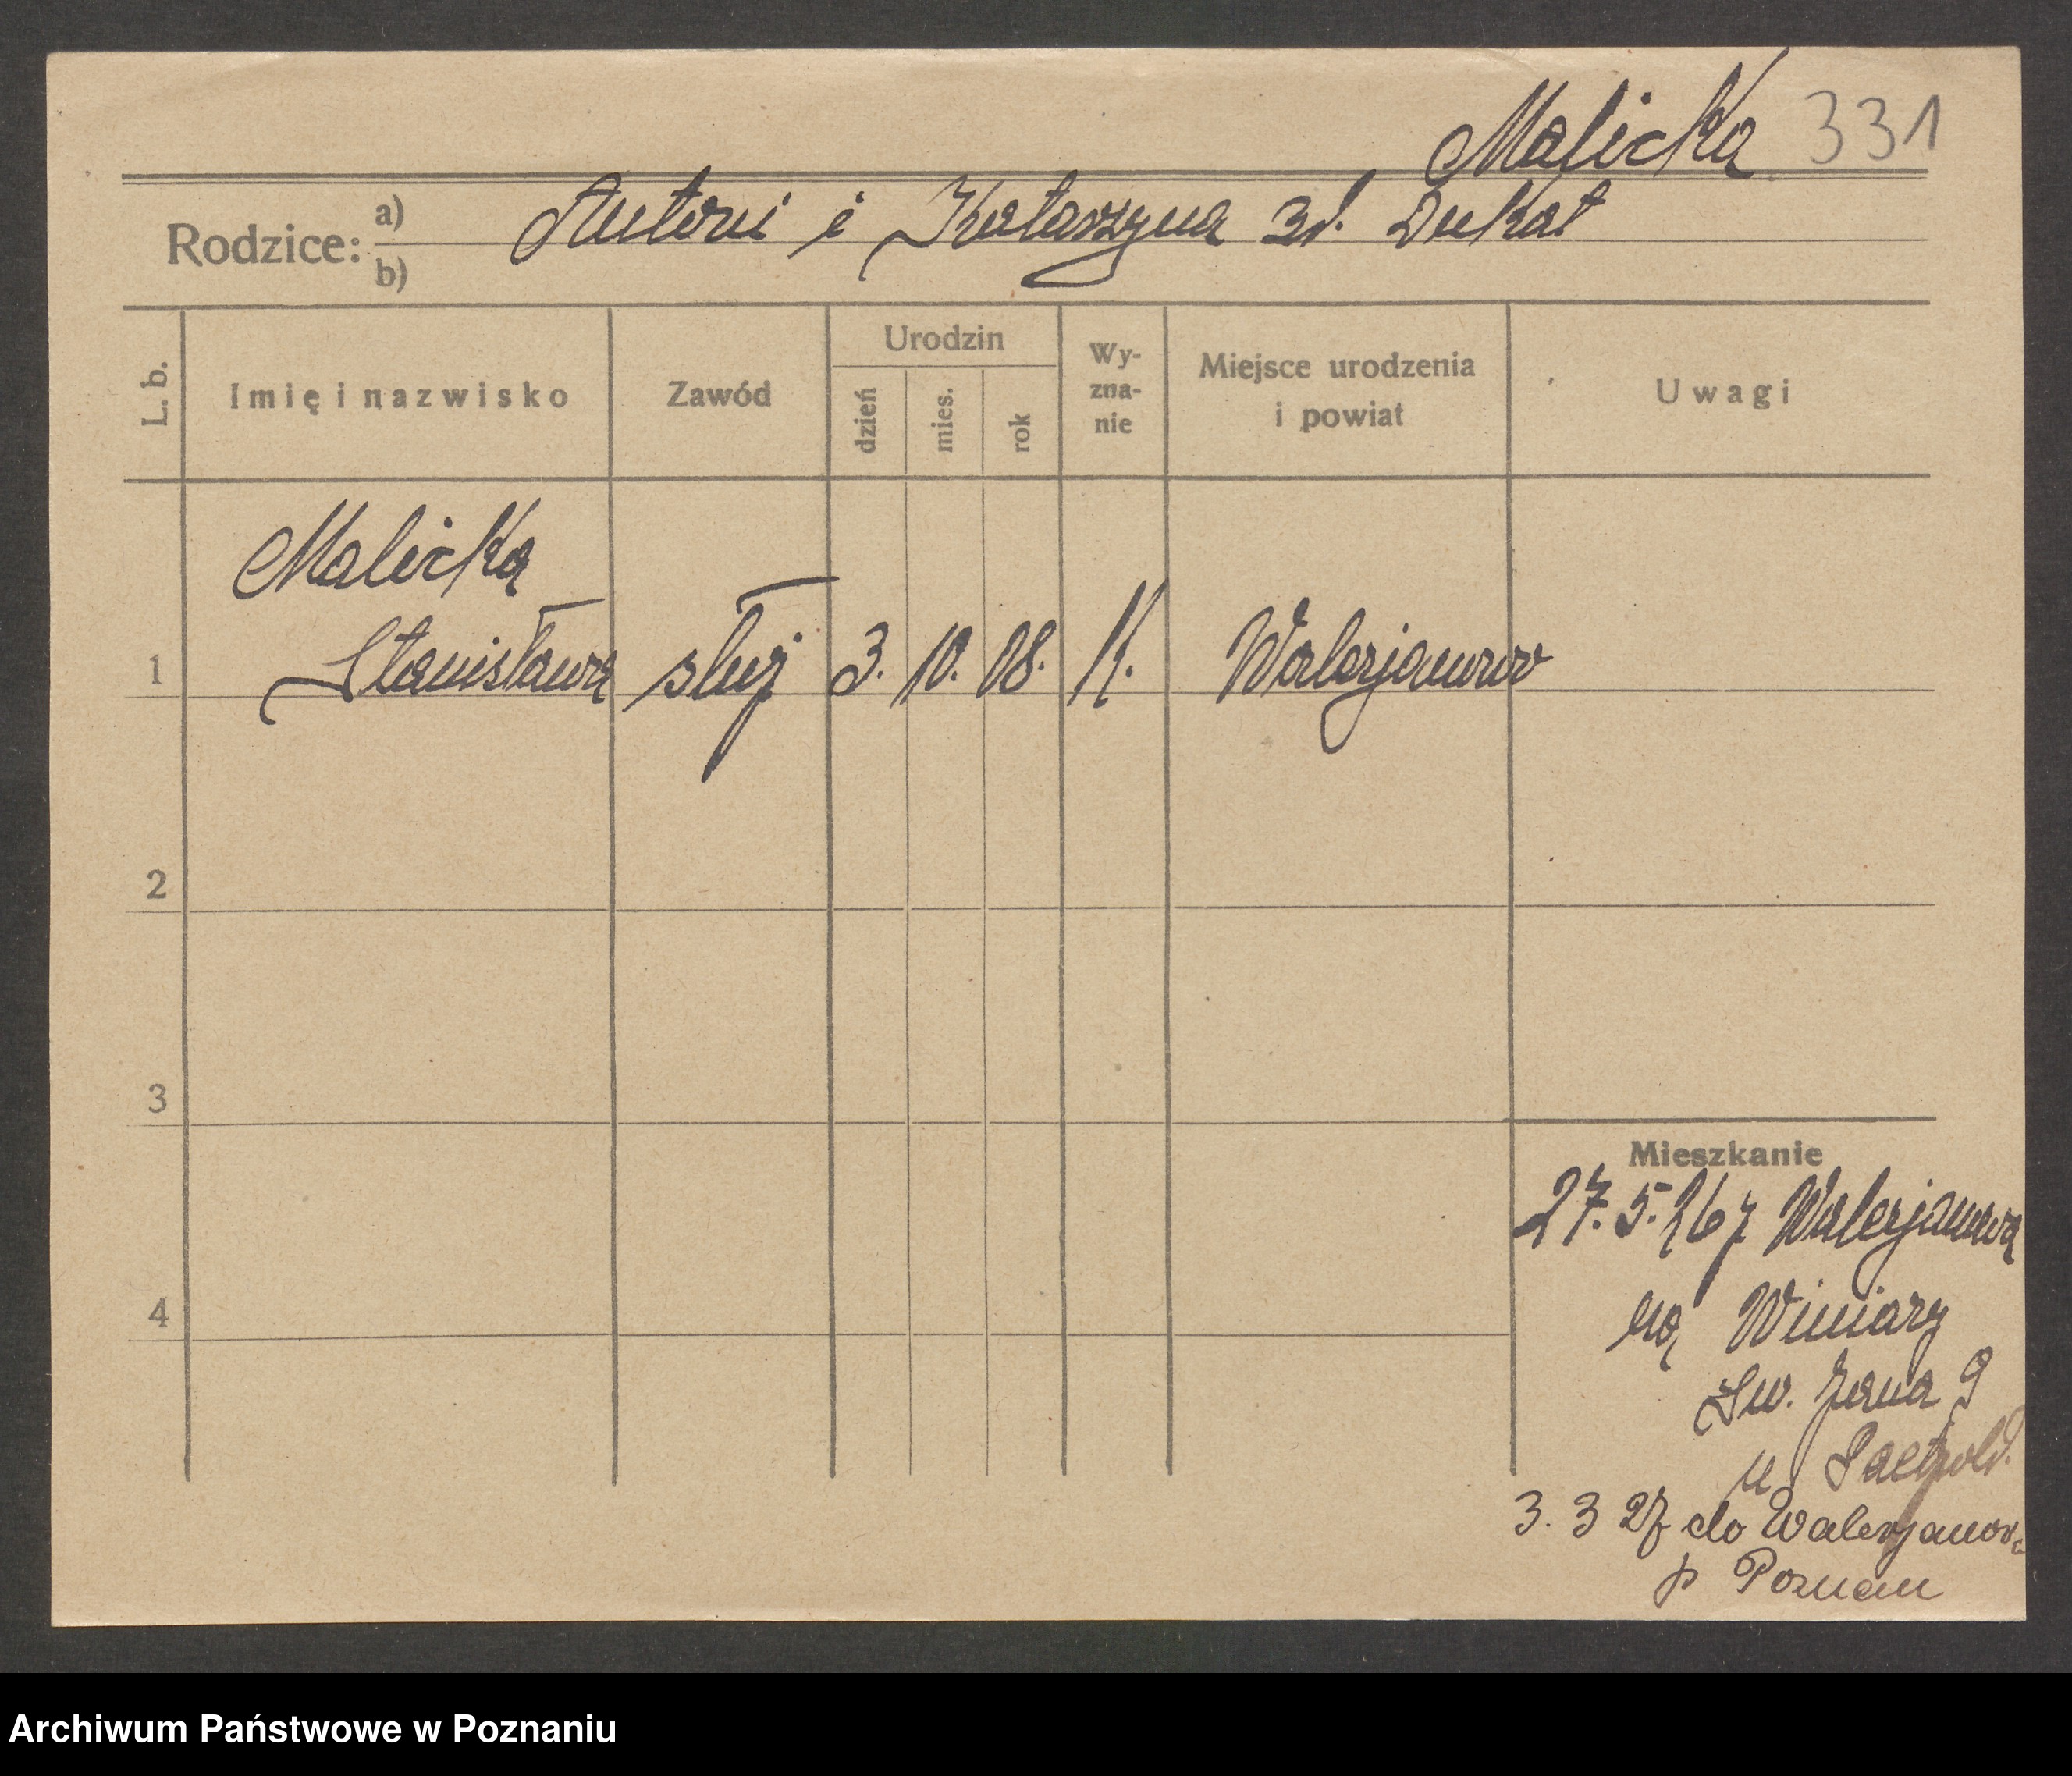 Malicka 331
Rodzice: a) b) Antoni i Katarzyna zd. Dukat
L. b. Imię i nazwisko Zawód Urodzin dzień mies. rok Wy-zna-nie Miejsce urodzenia i powiat Uwagi
Malicka
1 Stanisława służ 3. 10. 08. K. Walerjanowo
2
3
Mieszkanie
27. 5. 26 z Walerjanowa
4
na Winiary
Św. Jana 9
u
3. 3 27 do Walerjanowa
p Poznań
Archiwum Państwowe w Poznaniu